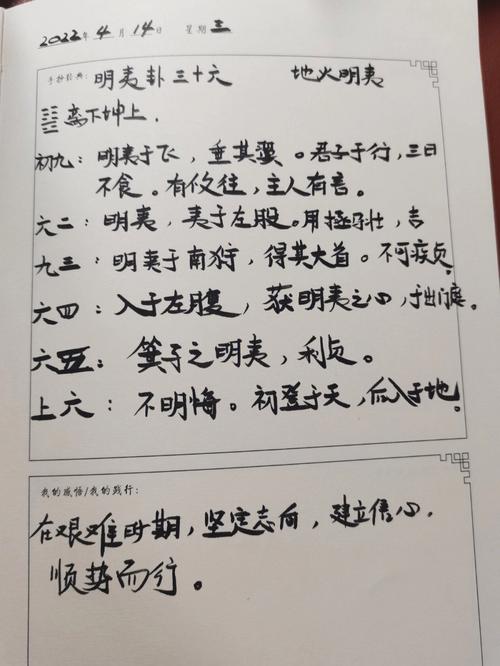 2022年4月14日 星期三
手抄经典: 明夷卦三十六 地火明夷
䷣离下坤上.
初九：明夷于飞，垂其翼。君子于行，三日
不食。有攸往，主人有言。
六二：明夷，夷于左股。用拯马壮，吉
九三：明夷于南狩，得其大首。不可疾贞
六四：入于左腹，获明夷之心，于出门庭。
六五：箕子之明夷，利贞。
上六：不明悔。初登于天，后入于地。
我的感悟/我的践行:
在艰难时期，坚定志向，建立信心，
顺势而行。